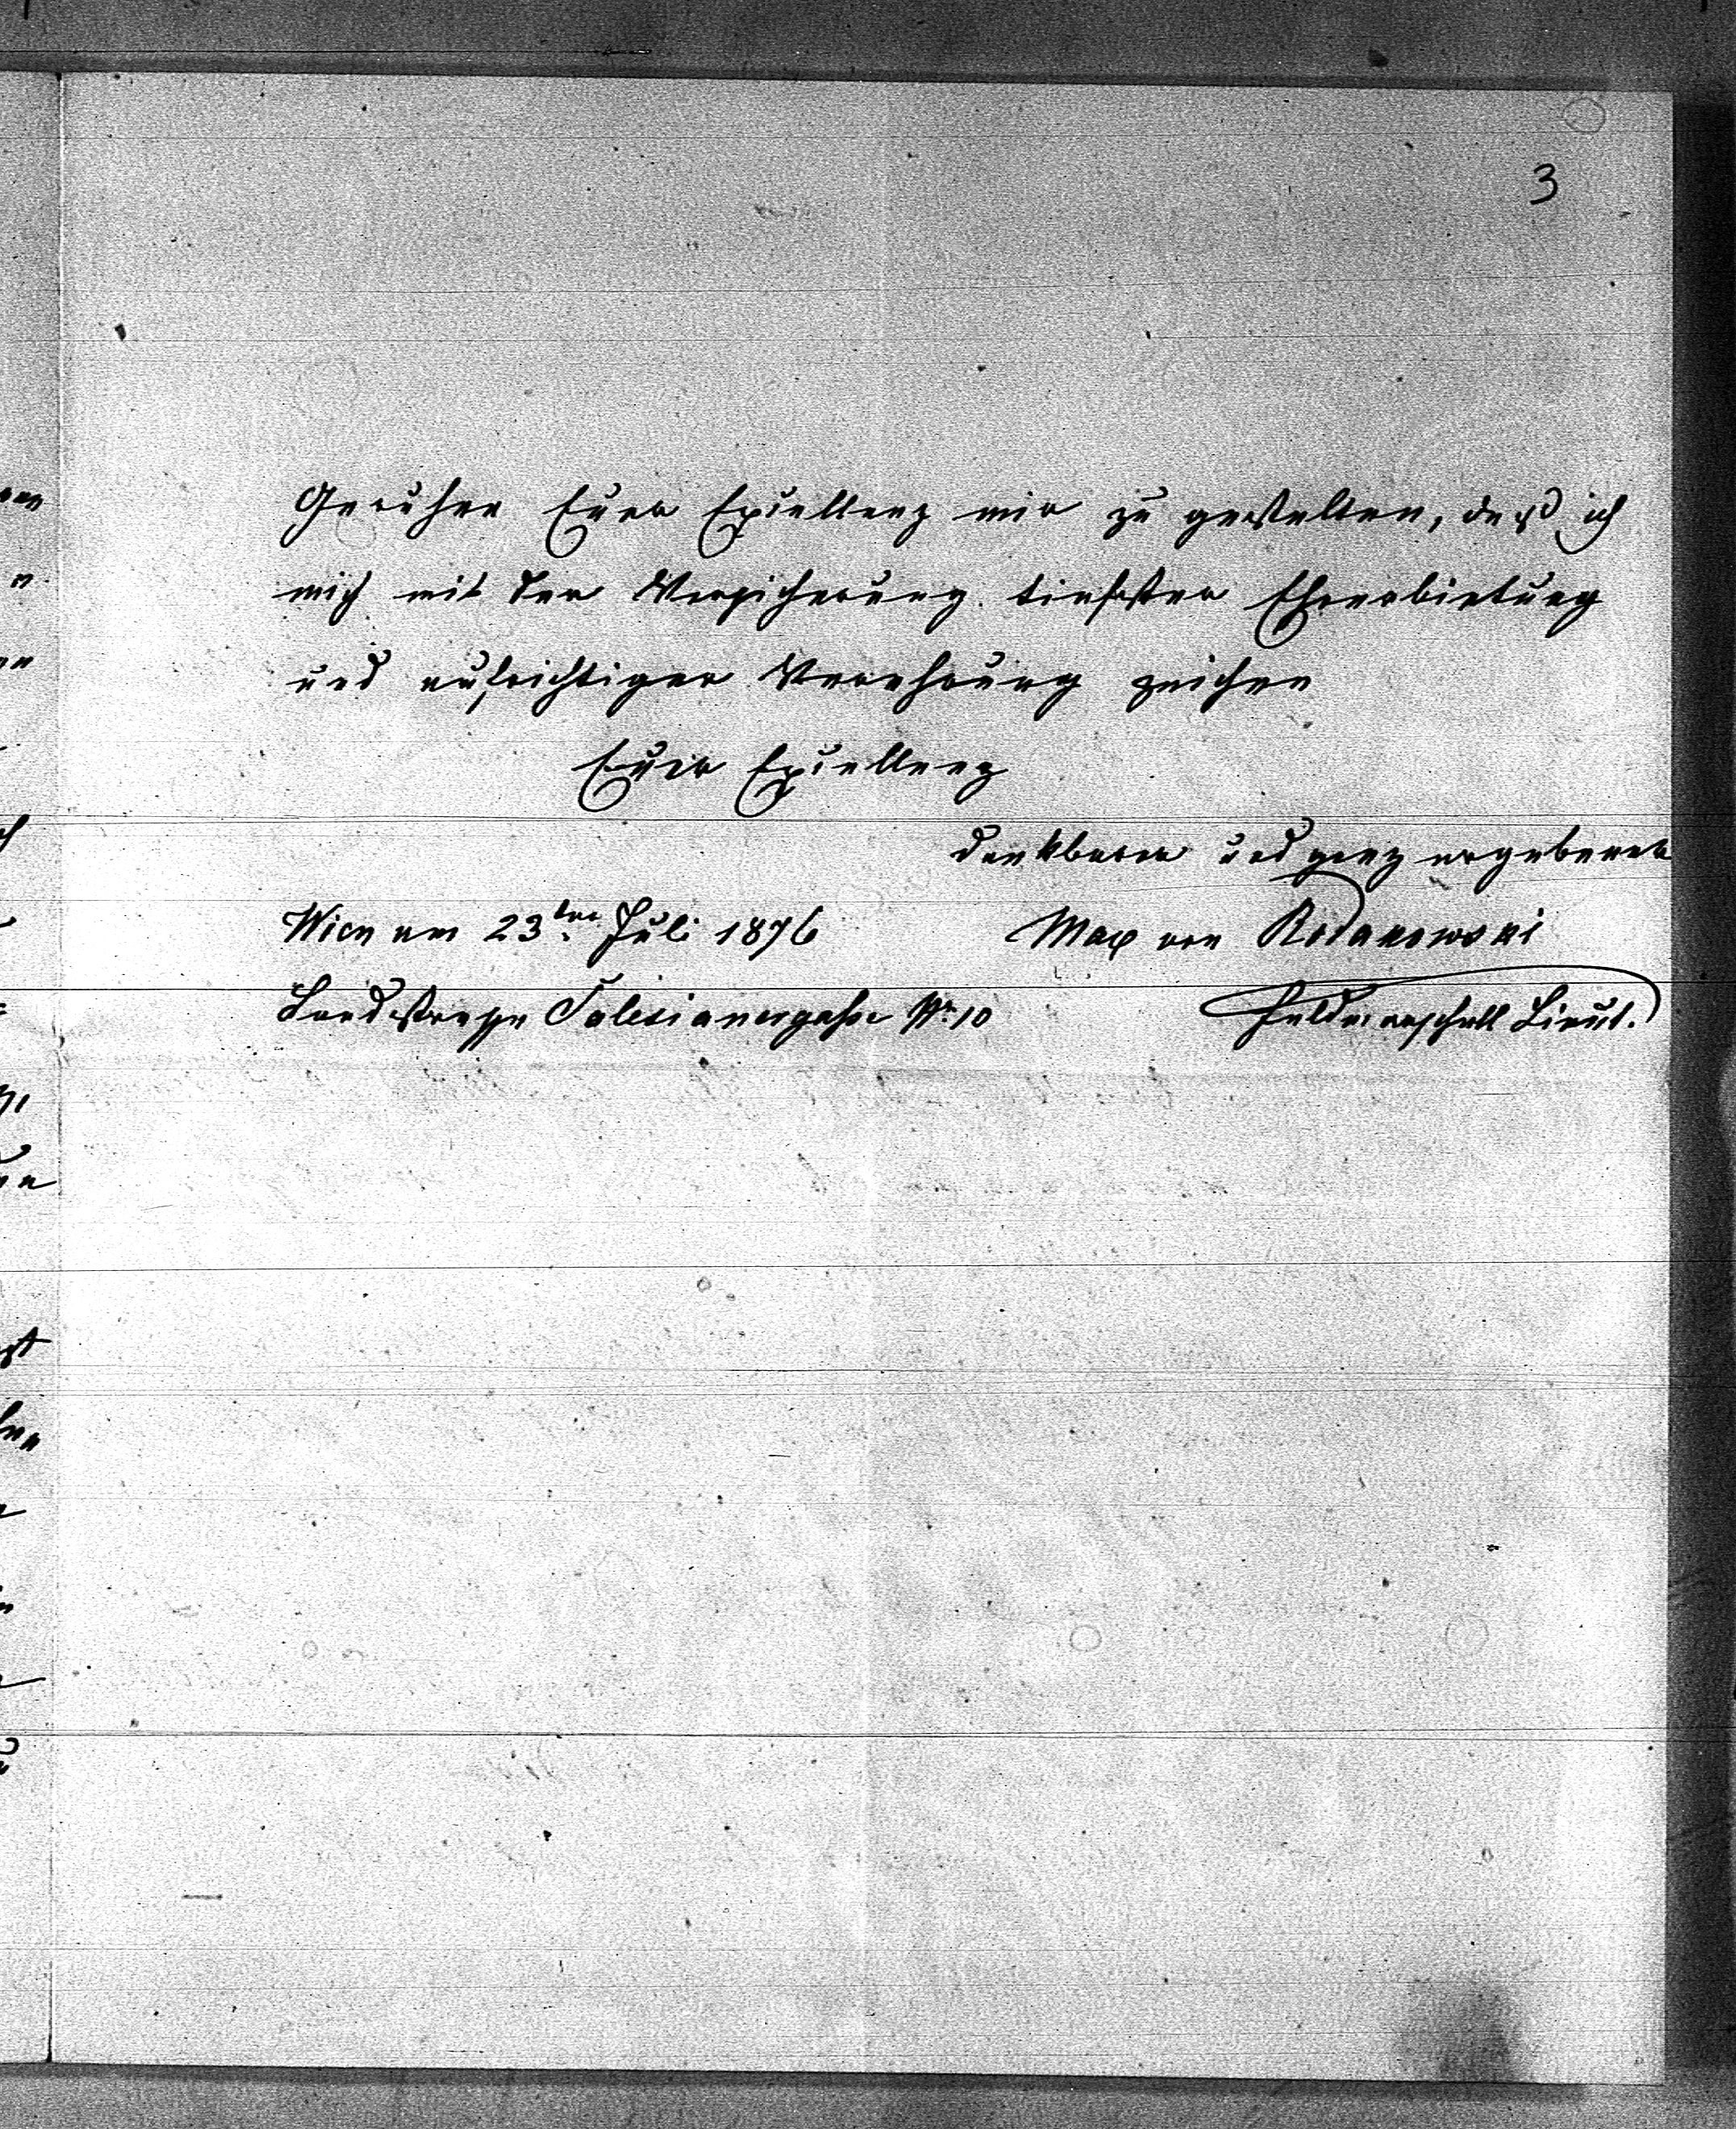 3
Geruhen Euer Exzellenz mir zu gestatten, daß ich
mich mit der Versicherung tiefster Ehrerbietung
und aufrichtiger Verehrung zeichne
Euer Exzellenz
dankbarer und ganz ergebener
Wien am 23ten Juli 1876
Max von Rodakowski
Landstrasse Salesianergasse Nr 10
Feldmarschall Lieut.